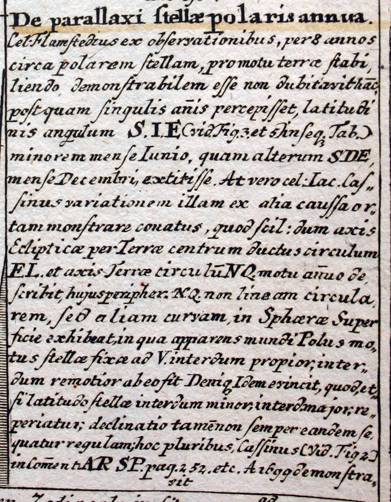 De parallaxi stellæ polaris annua.
Cel. Flamstedius ex observationibus, per 8 annos
circa polarem stellam, pro motu terræ stabi,
liendo, demonstrabilem esse non dubitavit hãc,
post quam singulis añis percepisset, latitudi
nis angulum S.I.E (vid Fig. 3. et 5 hn seq. Tab.)
minorem mense Iunio, quam alterum S.DE,
mense Decembri, extitisse. At vero cel: Iac. Cas,
sinus variationem illam ex alia caussa or,
tam monstrare conatus, quod scil: dum axis
Eclipticæ per Terræ centrum ductus circulum
EL. et axis Terræ circulũ NQ. motu anuo de
scribit, hujus peripher. NQ. non lineam circula,
rem, sed aliam curvam, in Sphæræ Super
ficie exhibeat, in qua apparens mundi Polus mo,
tus stellæ fixæ ad V. interdum propior, inter,
dum remotior abeo sit Deniq, Idem evincit, quod, et,
si latitudo stellæ interdum minor, interd. major, re,
periatur; declinatio tamẽ non semper eandem se,
quatur regulam; hoc pluribus, Cassinus (Vid. Fig 2.)
in Com̃ent AR SP. pag. 252. etc. A 1699 demonstra,
vit